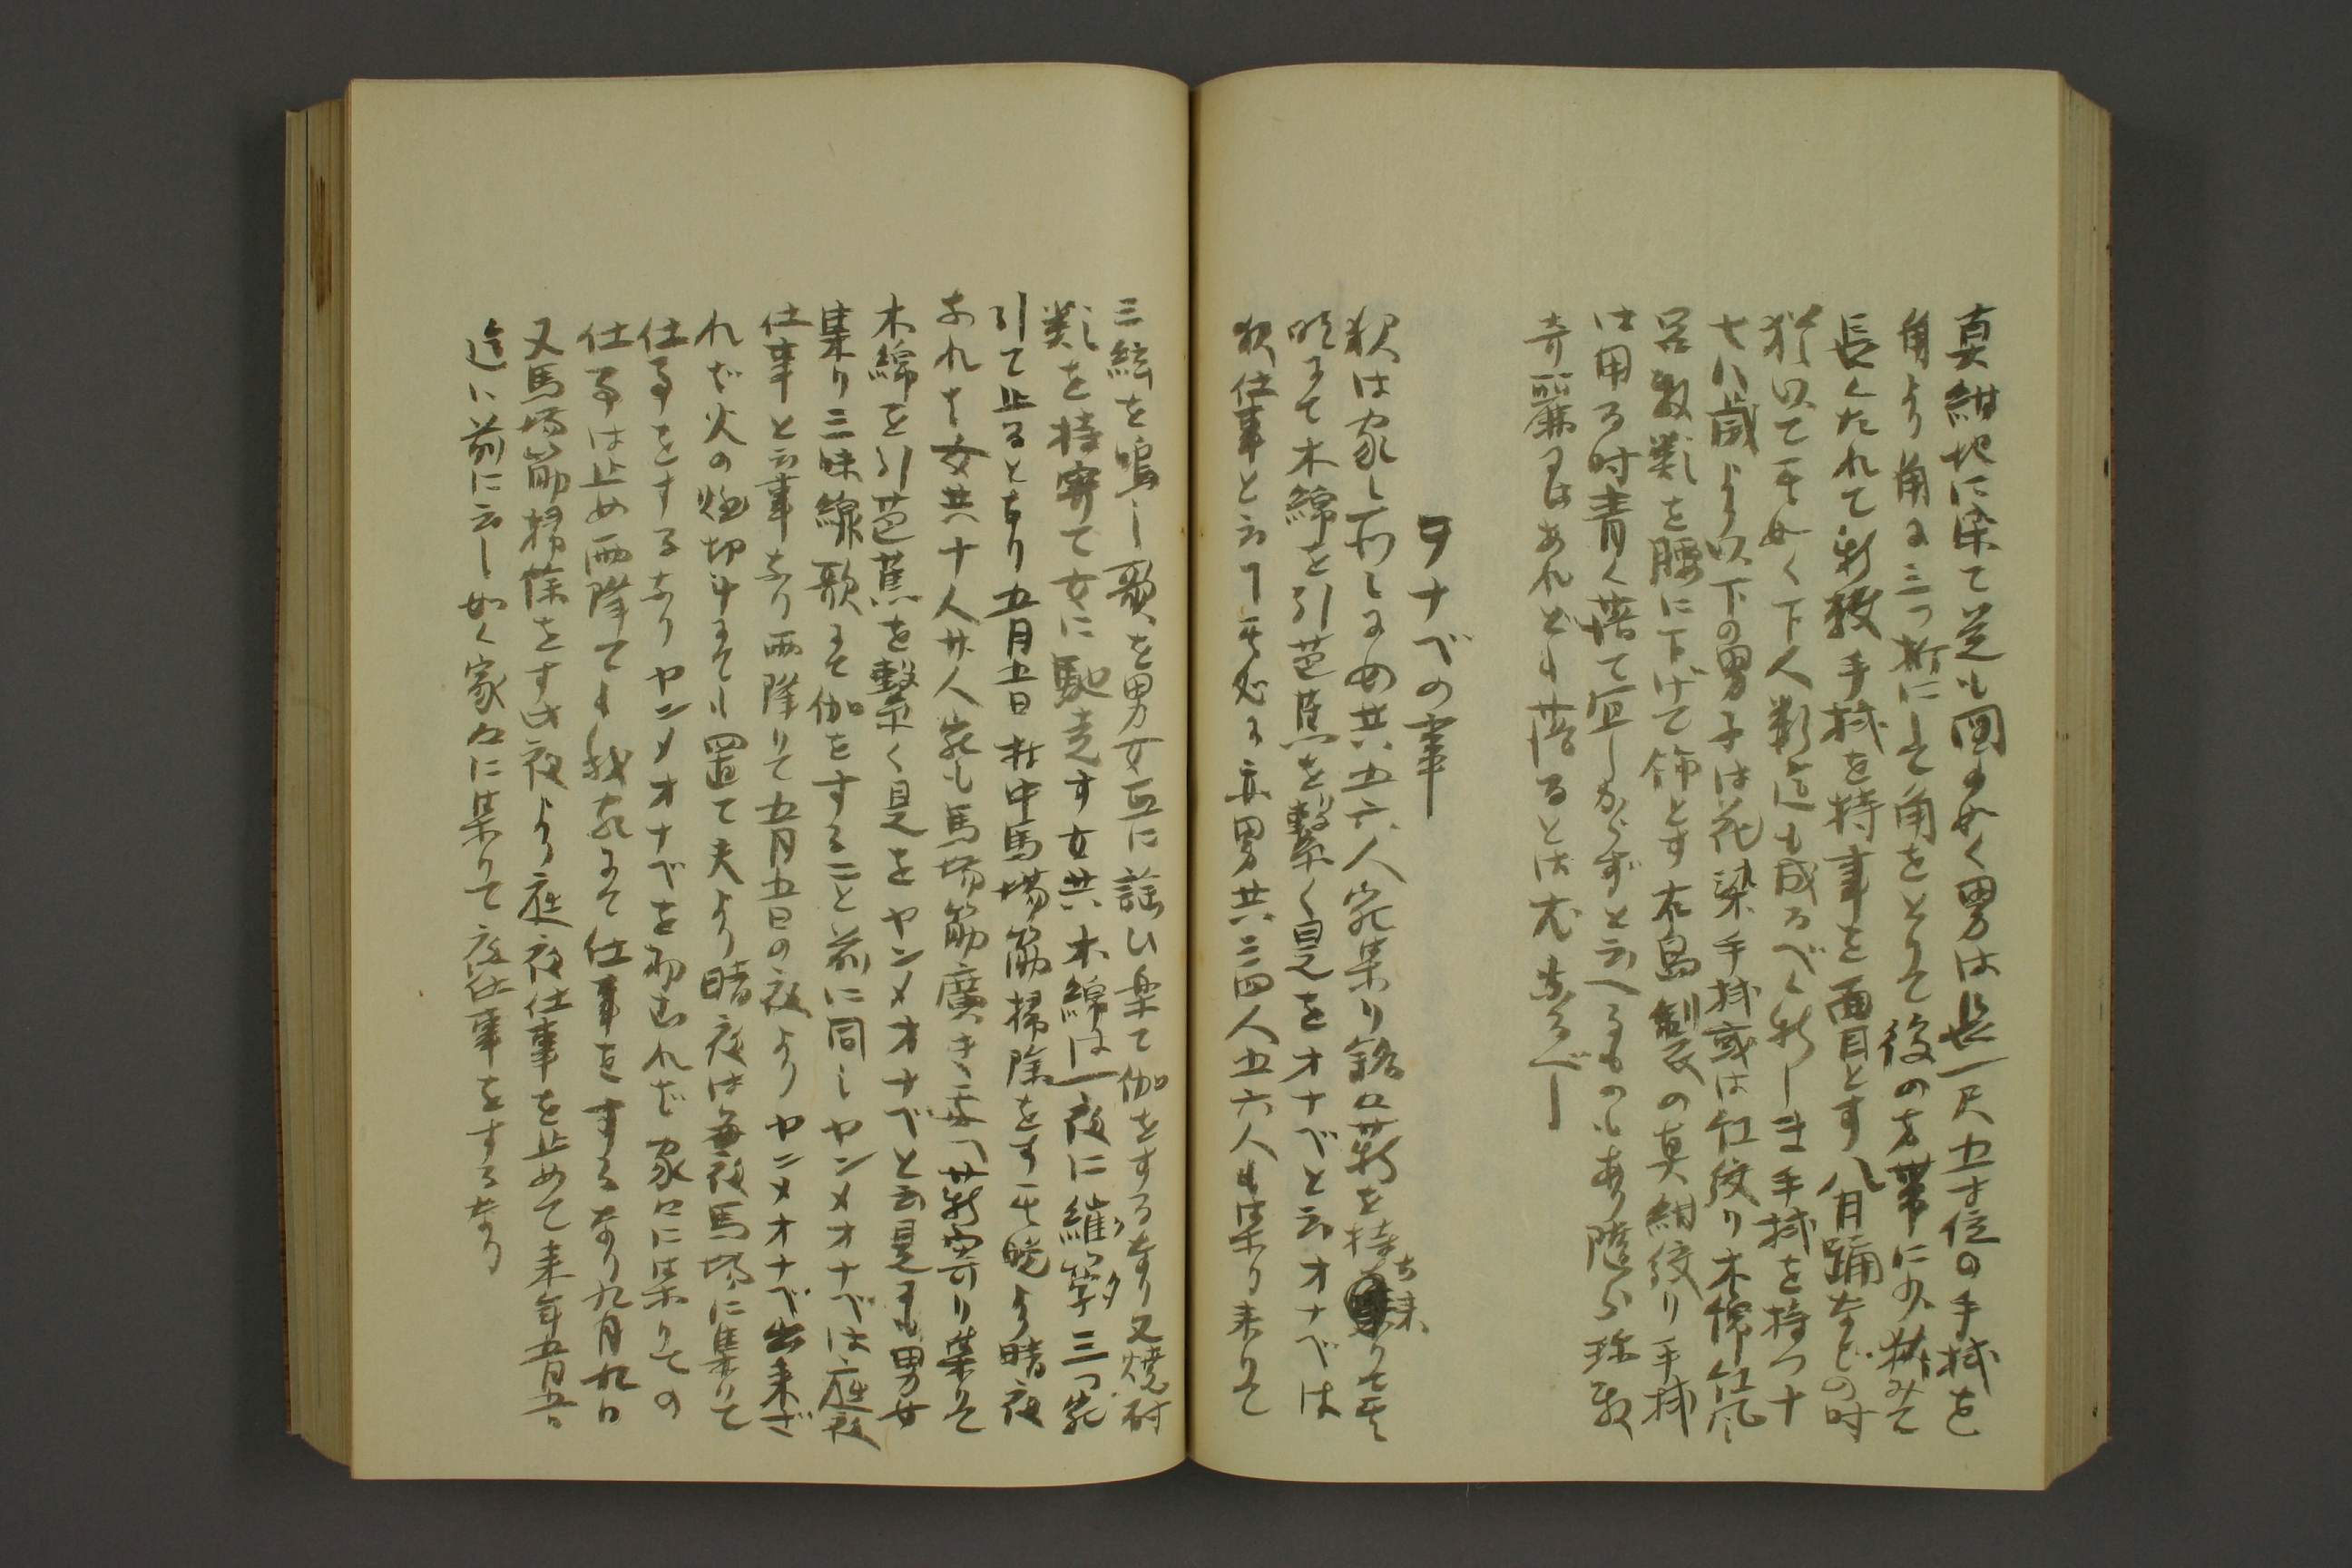 真紺地に染て是も図の如く男は長一尺五寸位の手拭を
角より角に三つ折にして角をとりて後の方帯に少挟みて
長くたれて新敷手拭を持事を面目とす八月踊などの時
猶以て其如く下人類迄も成るべく新しき手拭を持つ十
七八歳より以下の男子は花染手拭或は紅絞り木綿紅風
呂敷類を腰に下げて飾とす右島製の真紺絞り手拭
は用る時青く落て宜しからずと云へるものもあり随分珍敷
奇麗にはあれども落るとは尤なるべし
ヲナベの事
秋は家し前しにめ共五六人宛集り銘々薪を持ち来りて其
明にて木綿を引芭蕉を繋く是をオナベと云オナベは
夜仕事と云丁其処に亦男共三四人五六人も集り来りて
三絃を鳴し歌を男女互に謡ひ楽て伽をするなり又焼酎
類を持寄て女に馳走す女共木綿は一夜に縒箏三つ宛
引て止るとなり五月五日村中馬場筋掃除をす其晩より暗夜
なれば女共十人廿人宛も馬場筋廣き処へ薪寄り集りて
木綿を引芭蕉を繋く是をヤンメオナベと云是にも男女
集り三味線歌にて伽をすること前に同しヤンメオナベは庭夜
仕事と云事なり雨降りて五月五日の夜よりヤンメオナベ出来ざ
れば火の燈切斗にても置て夫より暗夜は毎夜馬場に集りて
仕事をするなりヤンメオナベを初むれば家々に集りての
仕事は止め雨降ても我家にて仕事をするなり九月九日
又馬場筋掃除をす此夜より庭夜仕事を止めて来年五月五日
迄に前に云し如く家々に集りて夜仕事をするなり